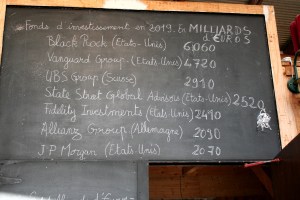 Fonds d'investissement en 2019. En MILLIARDS
d'€UROS
Black Rock (Etats-Unis) 6060
Vanguard Group (Etats-Unis) 4720
UBS Group (Suisse) 2910
State Street Global Advisors (Etats-Unis) 2520
Fidelity Investments (Etats-Unis) 2410
Allianz Group (Allemagne) 2090
J.P Morgan (Etats Unis) 2070